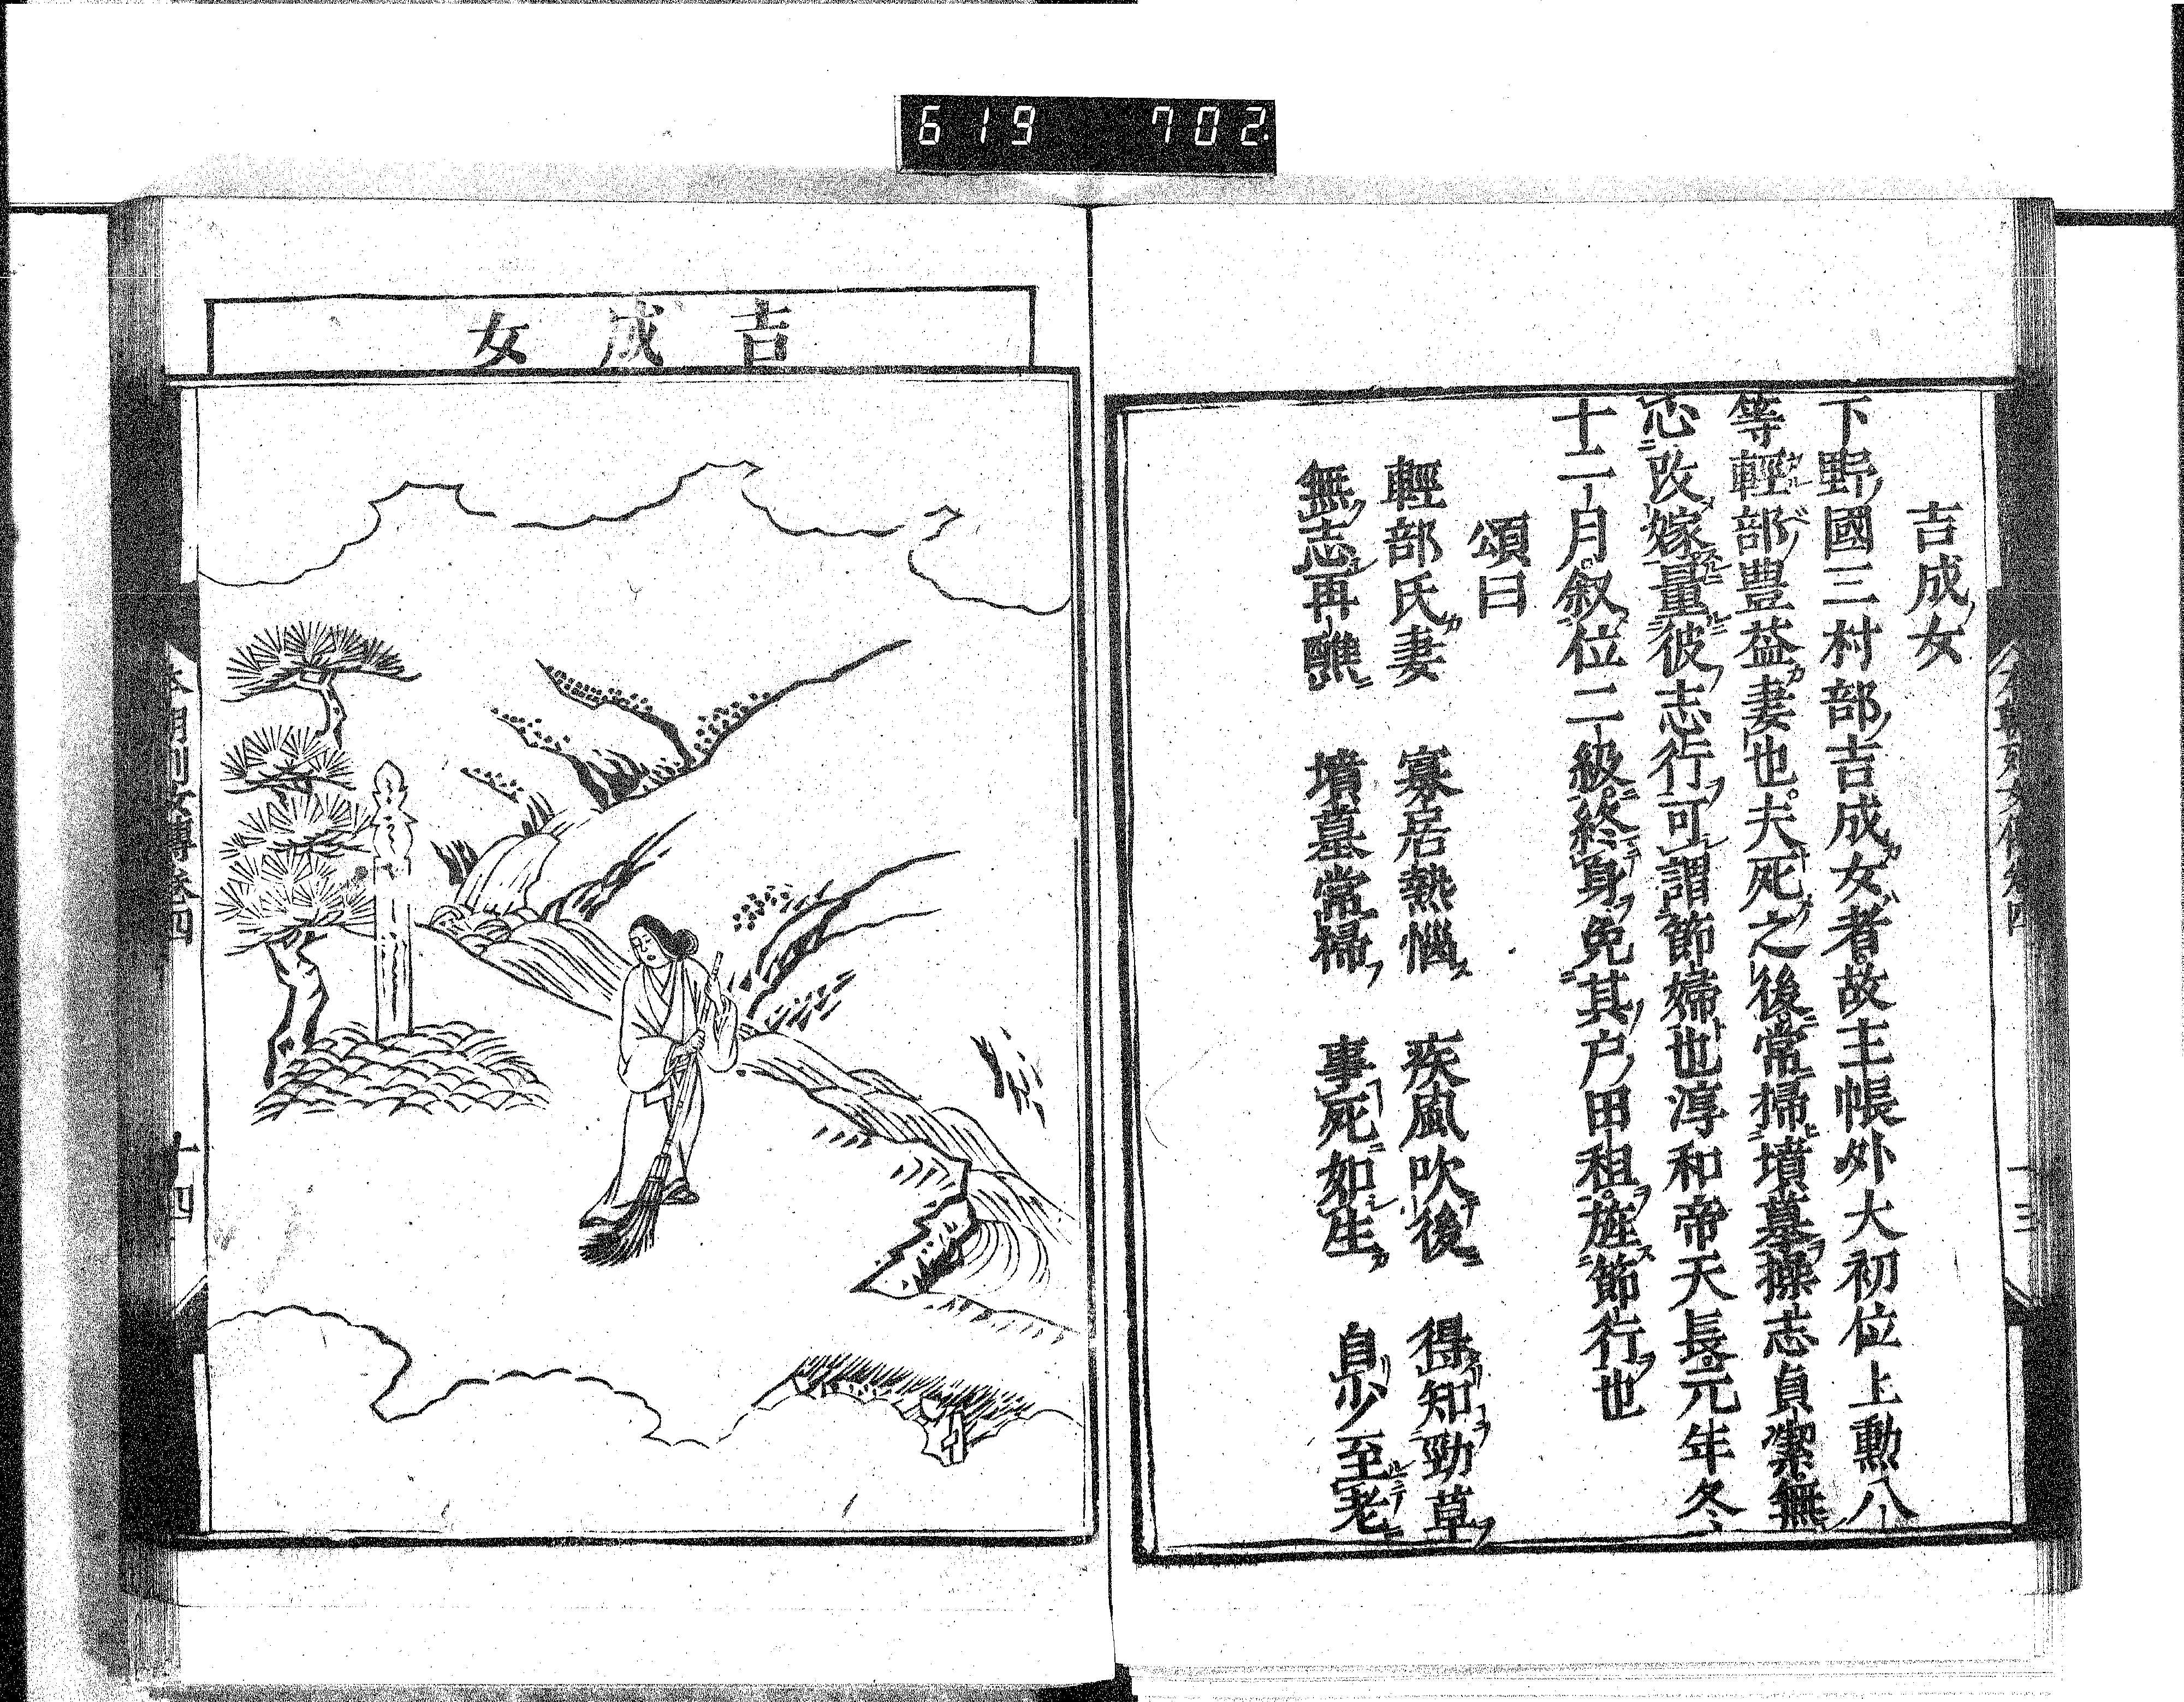 619 702
吉成女
下野國三村部吉成女者故主帳外大初位上勳八
等輕部豊益妻也夫死之後常掃墳墓操志貞潔無
志改嫁量彼志行可謂節婦也淳和帝天長元年冬
十二月叙位二級終身免其戸田租旌節行也
頌曰
輕部氏妻 寡居熱惱 疾風吹後 得知勁草
無志再醮 墳墓常掃 事死如生 自少至老
十三
吉成女
十四